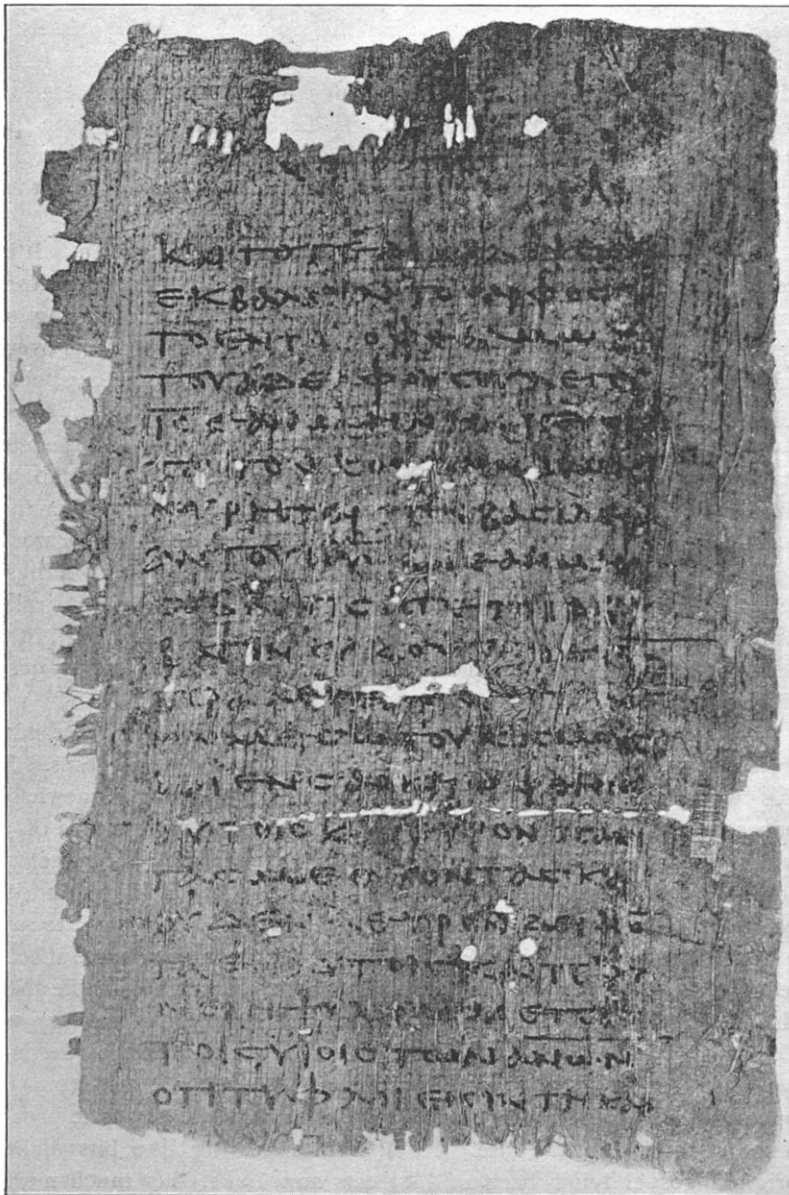 ΚΑΙ ΤΟΤΕ ΔΙΑΒΛΕΨΕΙϹ
ΕΚΒΑΛΕΙΝ ΤΟ ΚΑΡΦΟϹ
ΤΟ ΕΝ ΤΩ ΟΦΘΑΛΜΩ
ΤΟΥ ΑΔΕΛΦΟΥ ϹΟΥ ΛΕΓΕΙ
Ι̅Ϲ̅ ΕΑΝ ΜΗ ΝΗϹΤΕΥϹΗ
ΤΑΙ ΤΟΝ ΚΟϹΜΟΝ ΟΥ ΜΗ
ΕΥΡΗΤΑΙ ΤΗΝ ΒΑϹΙΛΕΙ
ΑΝ ΤΟΥ Θ̅Υ̅ ΚΑΙ ΕΑΝ ΜΗ
ϹΑΒΒΑΤΙϹΗΤΕ ΤΟ ϹΑΒ
ΒΑΤΟΝ ΟΥΚ ΟΨΕϹΘΕ ΤΟ
Π̅Ρ̅Α̅ ΛΕΓΕΙ Ι̅Ϲ̅ Ε[Ϲ]ΤΗΝ
ΕΝ ΜΕϹΩ ΤΟΥ ΚΟϹΜΟΥ
ΚΑΙ ΕΝ ϹΑΡΚΕΙ ΩΦΘΗΝ
ΑΥΤΟΙϹ ΚΑΙ ΕΥΡΟΝ ΠΑΝ
ΤΑϹ ΜΕΘΥΟΝΤΑϹ ΚΑΙ
ΟΥΔΕΝΑ ΕΥΡΟΝ ΔΕΙΨΩ
ΤΑ ΕΝ ΑΥΤΟΙϹ ΚΑΙ ΠΟ
ΝΕΙ Η ΨΥΧΗ ΜΟΥ ΕΠΙ
ΤΟΙϹ ΥΙΟΙϹ ΤΩΝ Α̅Ν̅Ω̅Ν̅
ΟΤΙ ΤΥΦΛΟΙ ΕΙϹΙΝ ΤΗ ΚΑΡ